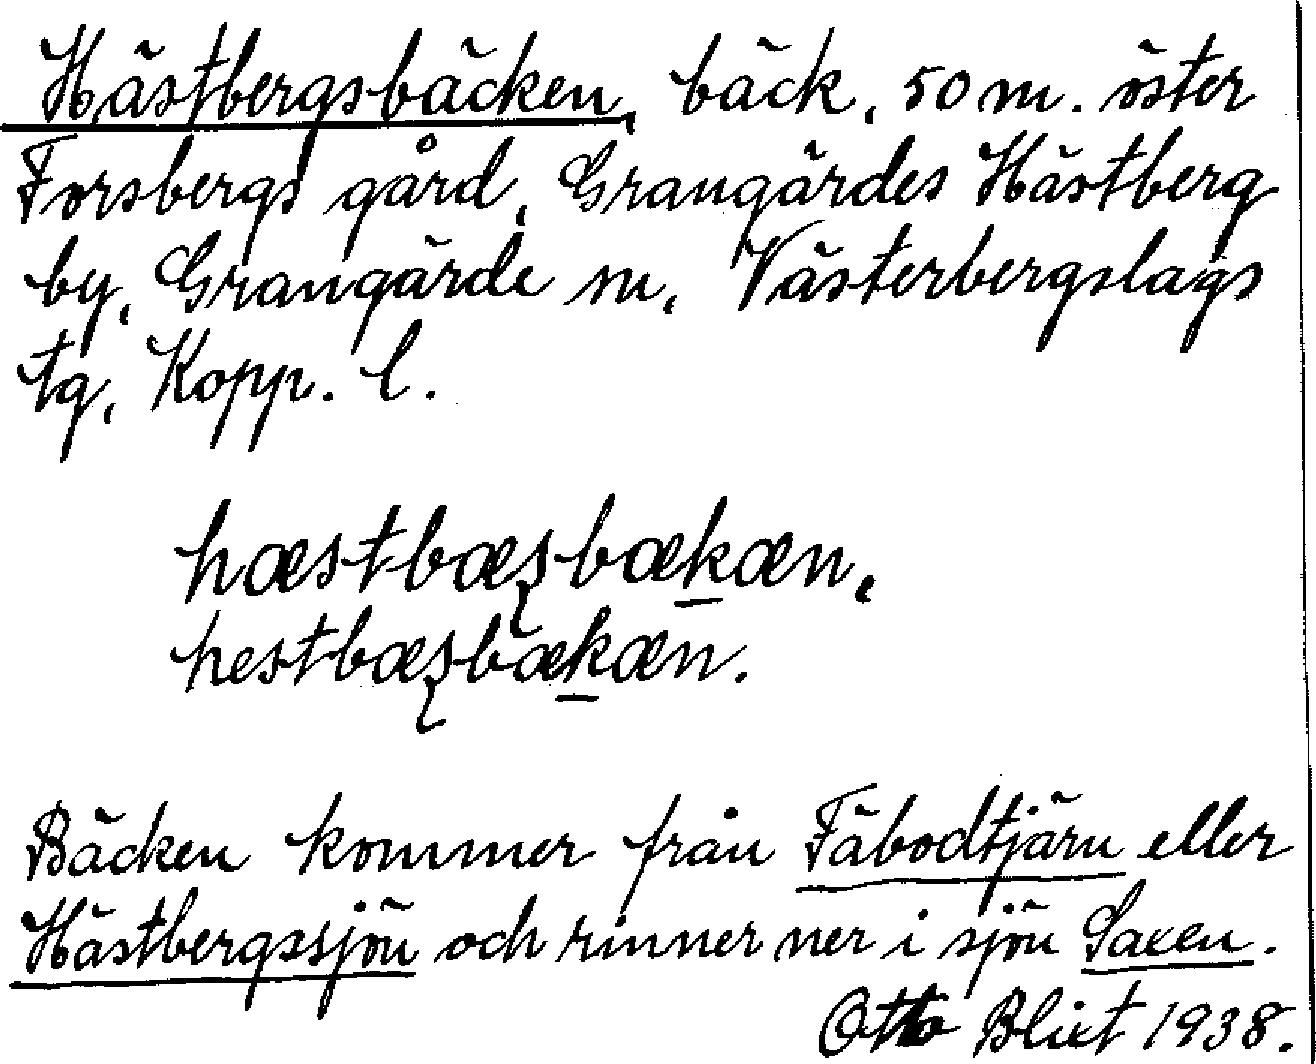 Hästbergsbäcken, bäck, 50 m. öster
Forsbergs gård, Grangärdes Hästberg
by, Grangärde sn, Västerbergslags
tg, Kopp. l.
hæstbæʂbækæn,
hestbæʂbækæn.
Bäcken kommer från Fäbodtjärn eller
Hästbergssjön och rinner ner i sjön Saxen.
Otto Blixt 1938.